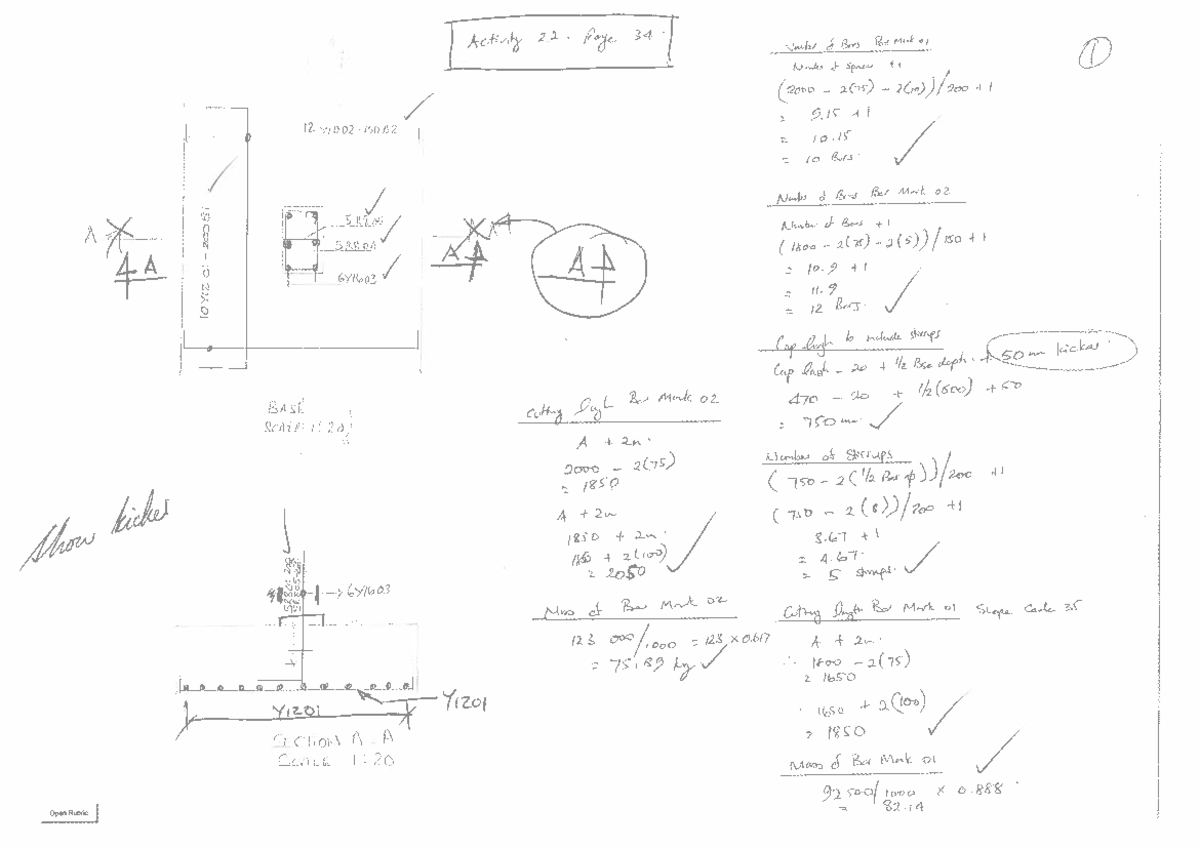 Activity 22. Page 34.
1
Number of Bars Bar Mark 01
Number of Spaces + 1
(2000 - 2(75) - 2(10))/200 + 1
= 9.15 + 1
= 10.15
= 10 Bars.
Number of Bars Bar Mark 02
Number of Bars + 1
(1800 - 2(75) - 2(5))/150 + 1
= 10.9 + 1
= 11.9
= 12 Bars.
Cap length to include stirrups
Cap length - 20 + 1/2 Base depth + 50mm kicker
470 - 20 + 1/2(500) + 50
= 750mm
Number of Stirrups
(750 - 2(1/2 Bar φ))/200 + 1
(750 - 2(8))/200 + 1
3.67 + 1
= 4.67.
= 5 stirrups.
Cutting length Bar Mark 01 Slope Code 35
A + 2n.
∴ 1800 - 2(75)
= 1650
∴ 1650 + 2(100)
= 1850
Mass of Bar Mark 01
92 500/1000 × 0.888
= 82.14
Cutting length Bar Mark 02
A + 2n.
2000 - 2(75)
= 1850
A + 2n
1850 + 2n.
1850 + 2(100)
= 2050
Mass of Bar Mark 02
123 000/1000 = 123 × 0.617
= 75.89 kg
A
A
A A
A A
5R8.05
5R8.04
6Y1603
BASE
SCALE 1:20
Show kicker
6Y1603
Y1201
Y1201
SECTION A-A
SCALE 1:20
Open Rubric